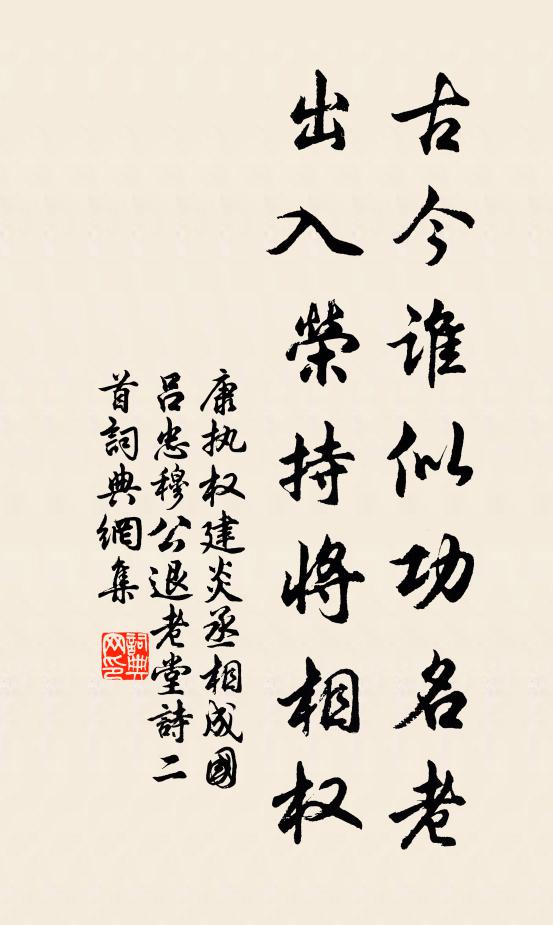 古今谁似功名老
出入榮持將相权
康执权建炎丞相成國
呂忠穆公退老堂詩二
首詞典網集
詞典网印